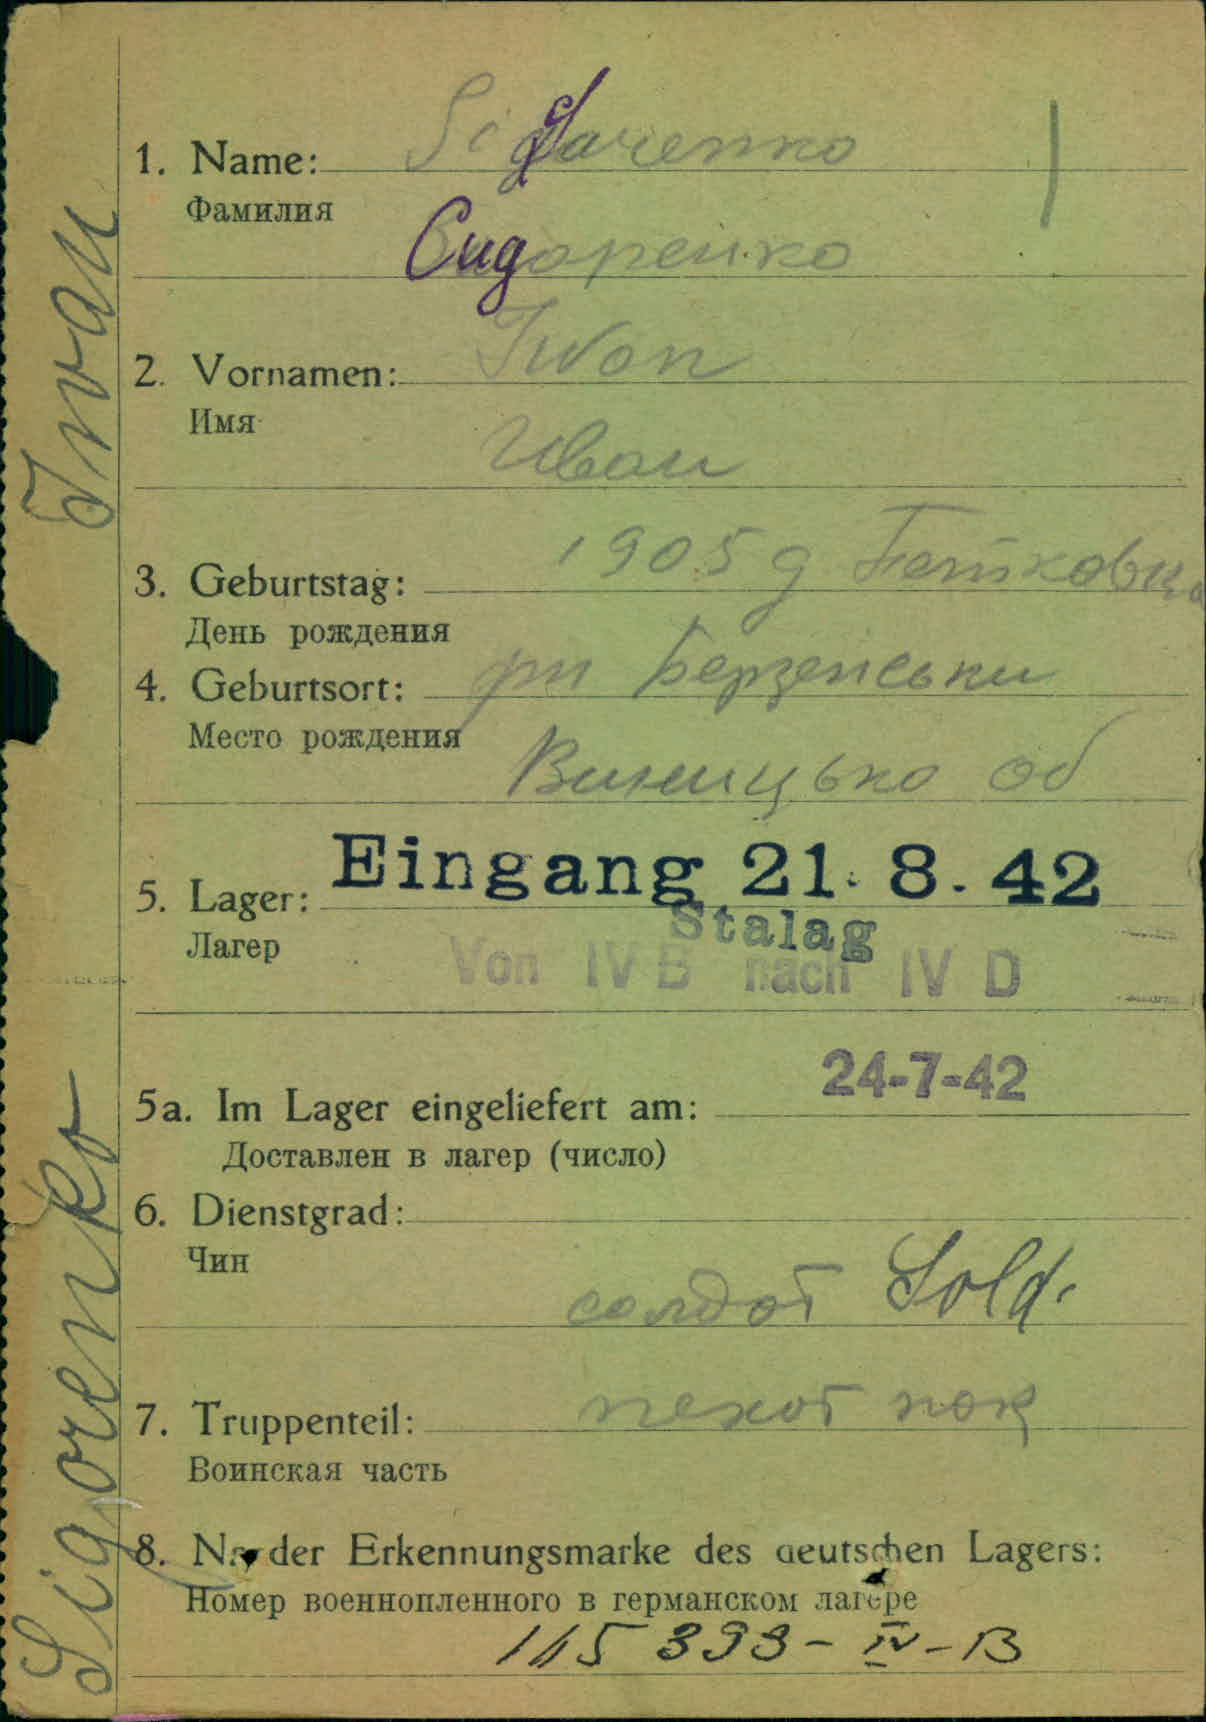 1. Name: Sidarenko
Фамилия
Сидоренко
2. Vornamen: Iwan
Имя
Иван
3. Geburtstag: 1905 д
День рождения
4. Geburtsort: рн
Место рождения
Виницько об
5. Lager: Eingang 21. 8. 42
Stalag
Лагер
Von IV B nach IV D
24-7-42
5a. Im Lager eingeliefert am:
Доставлен в лагер (число)
6. Dienstgrad:
Чин
солдат Sold.
7. Truppenteil: пехот
Воинская часть
8. Nr. der Erkennungsmarke des deutschen Lagers:
Номер военнопленного в германском лагере
145 393 - IV - B
Sigorenko Iwan